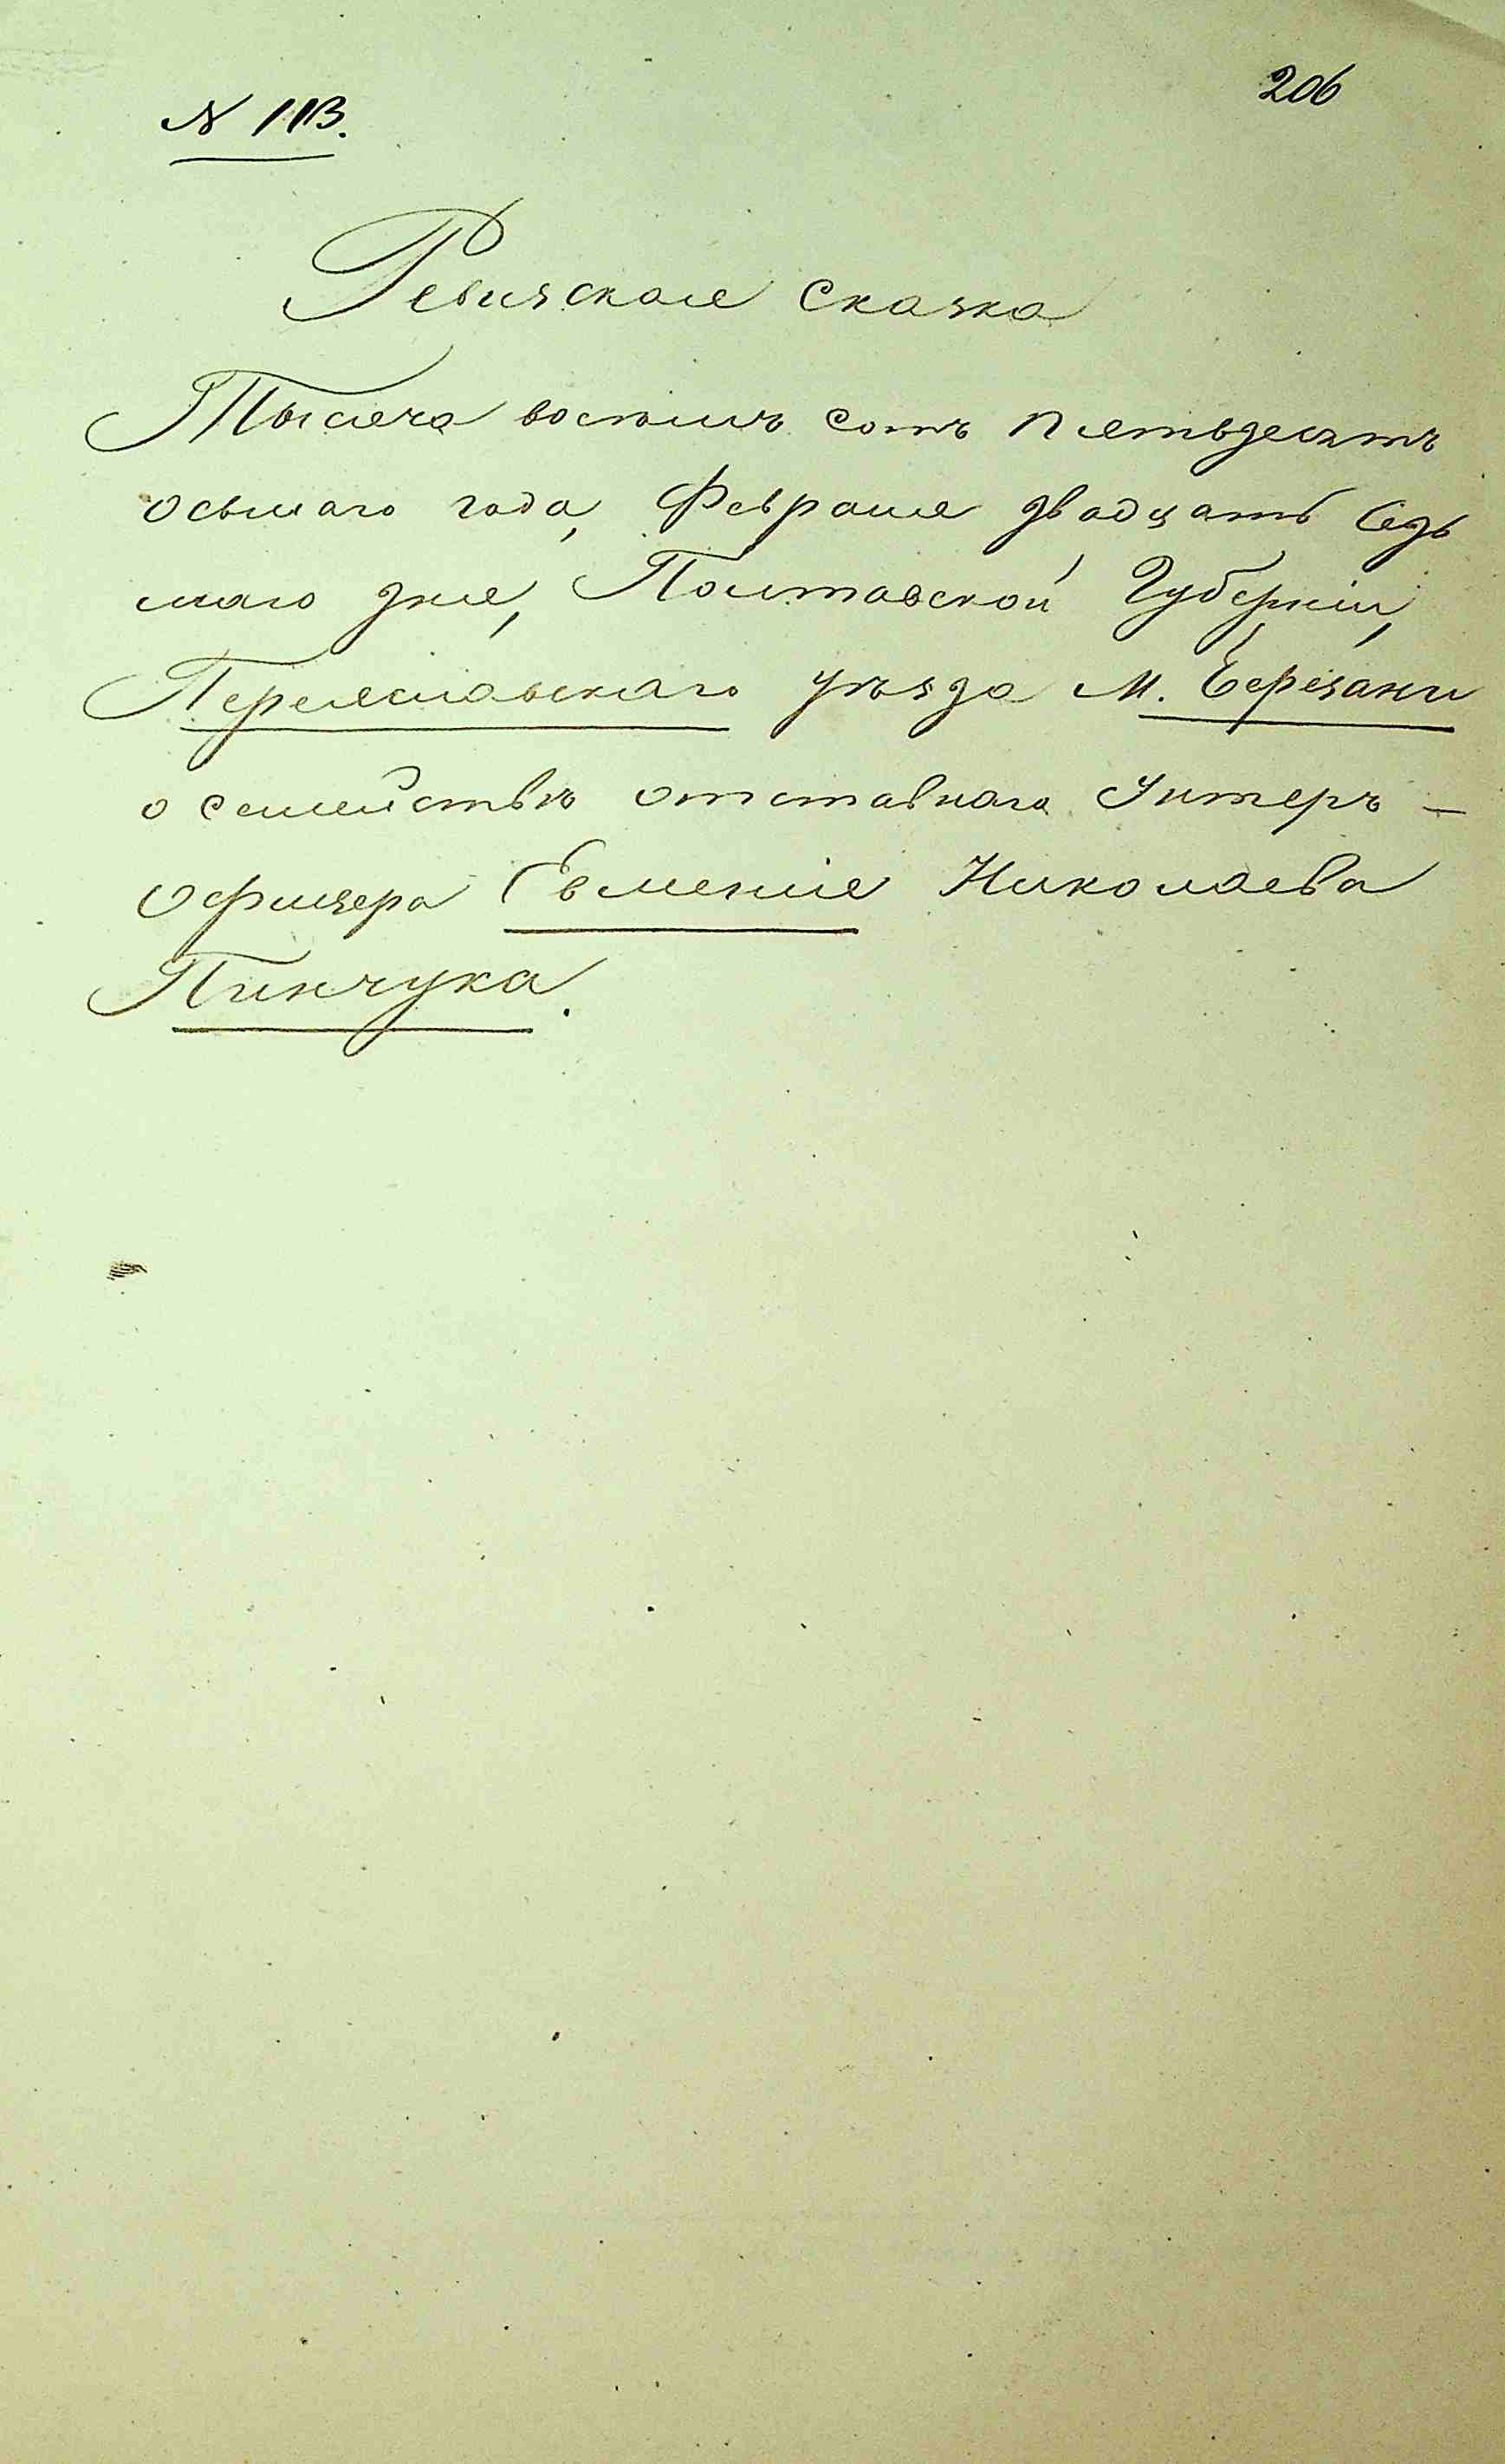 206
N 113.
Ревизская сказка
Тысяча восѣмъ сотъ пятьдесятъ
осьмаго года, Февраля двадцать седь
маго дня, Полтавской Губерніи,
Переяславскаго уѣзда м. Березани
о семействѣ отставнаго Унтеръ-
офицера Евменія Николаева
Пинчука.